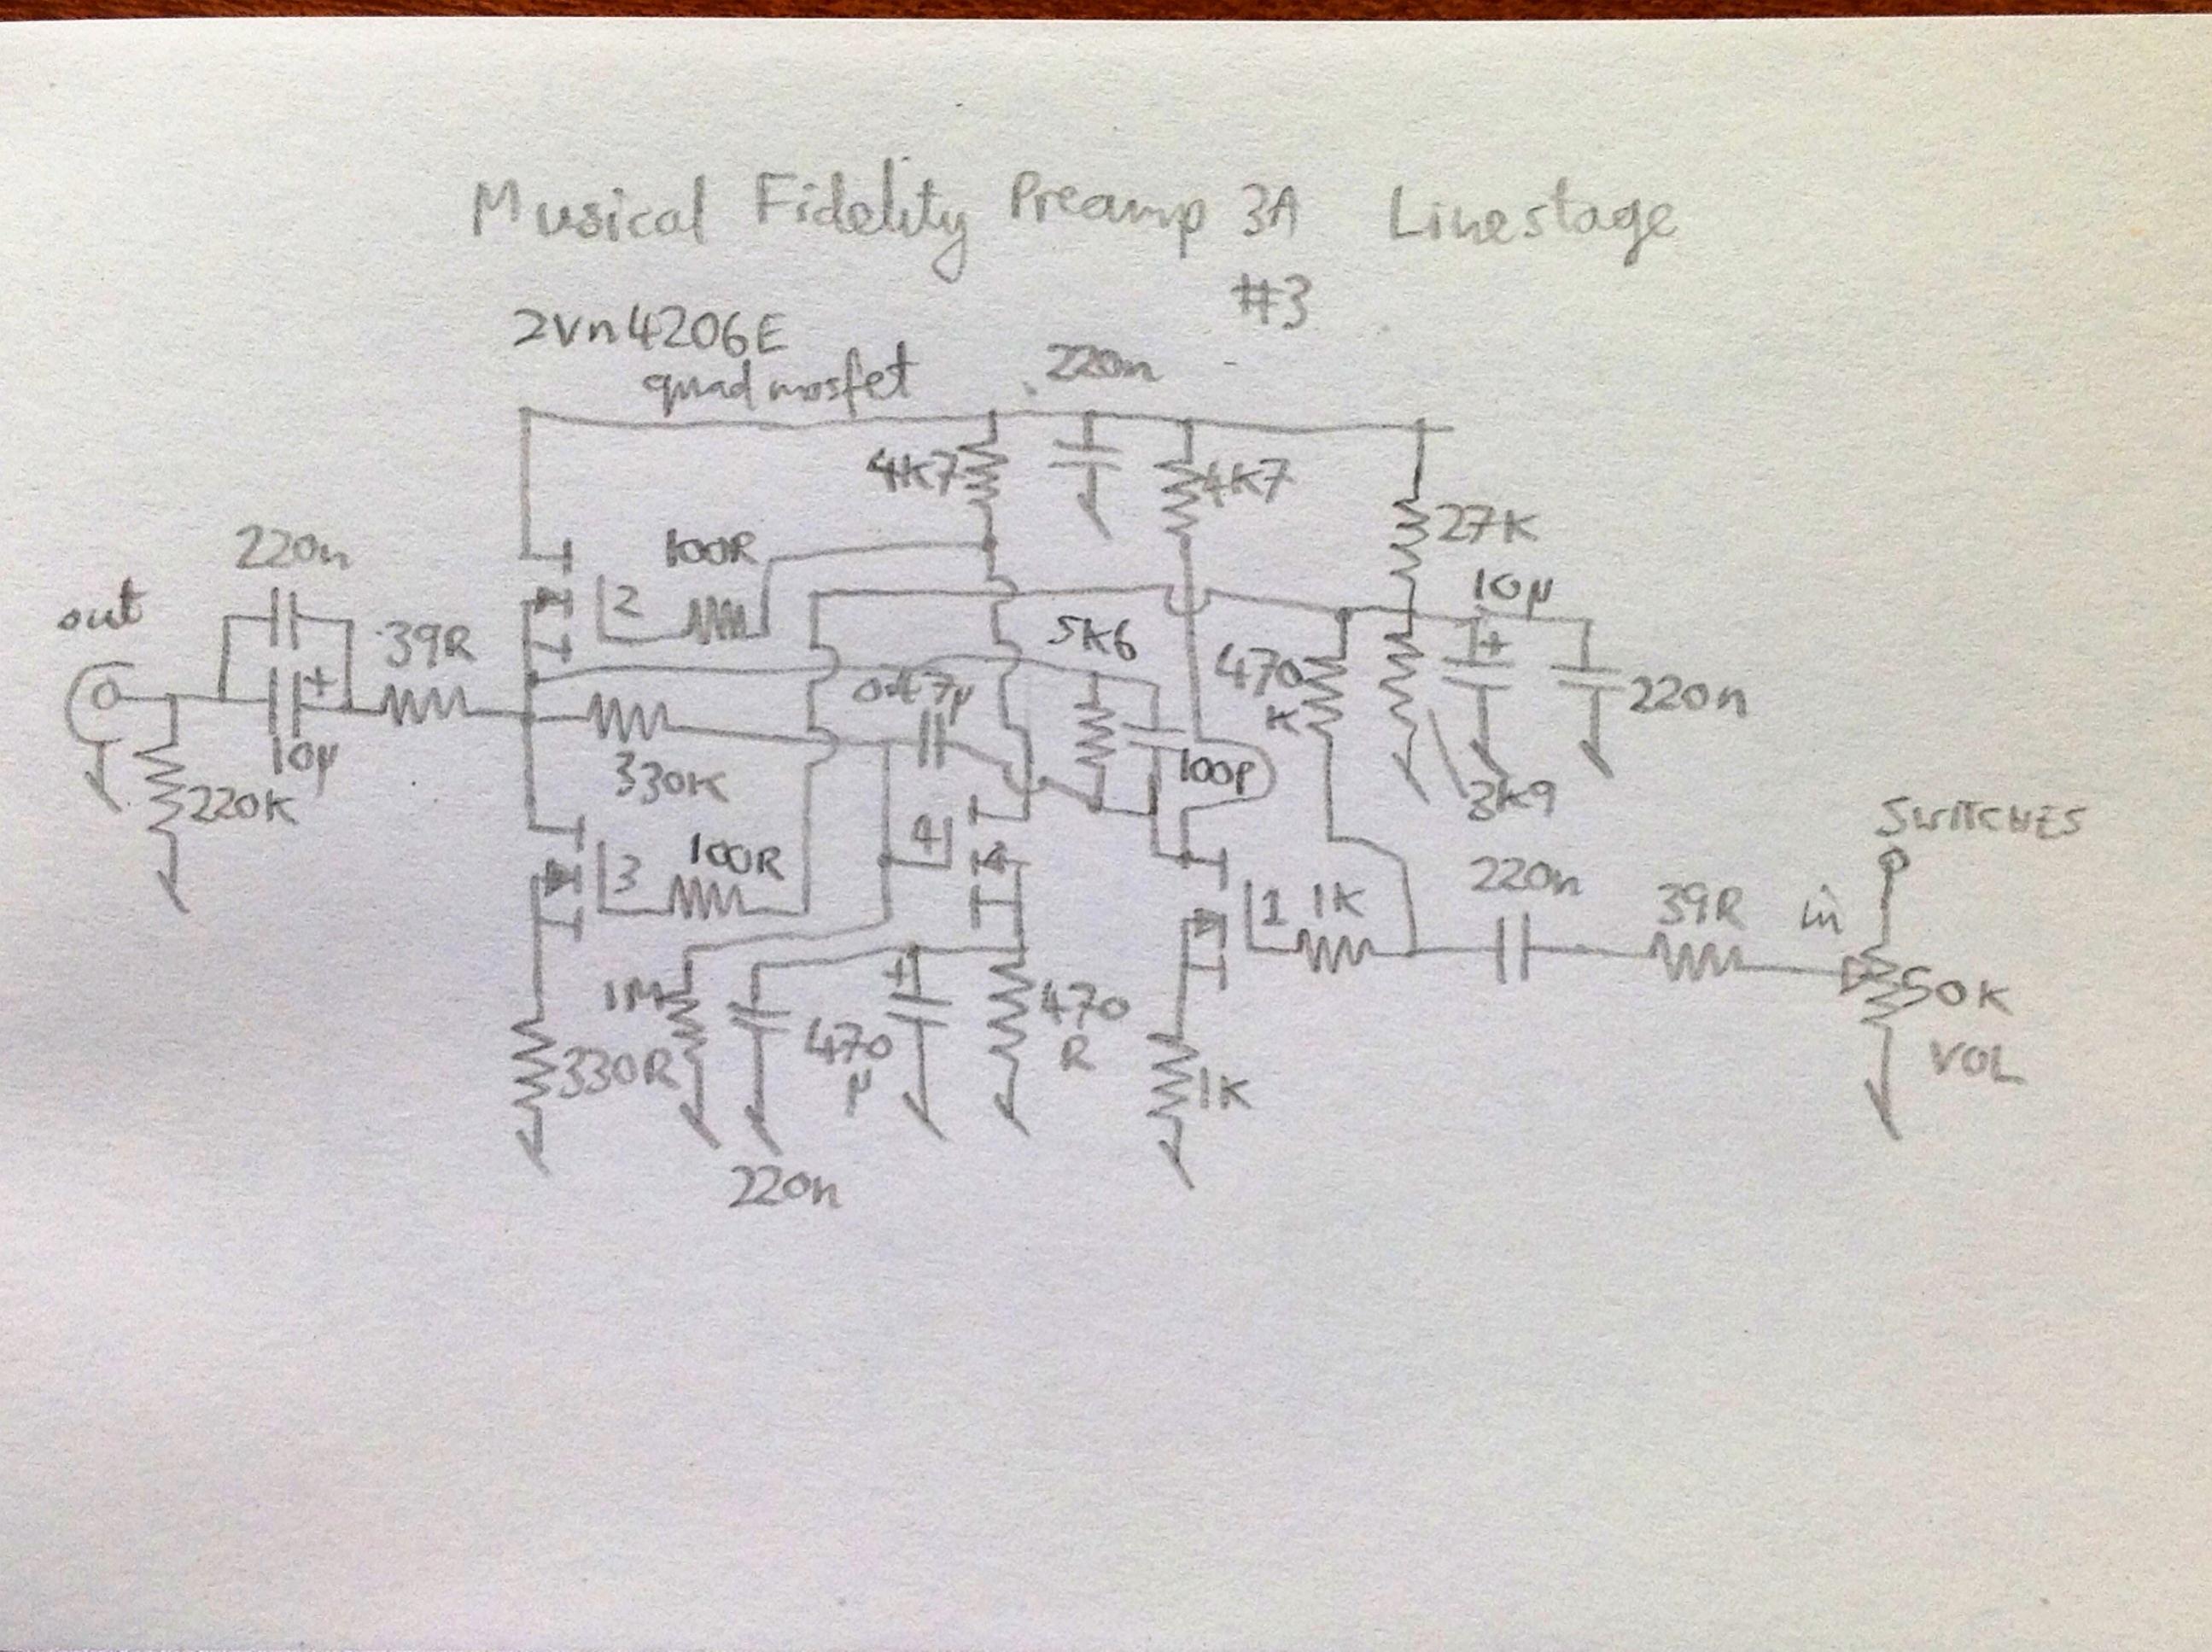 Musical Fidelity Preamp 3A Linestage
#3
2Vn4206E
quad mosfet
220n
4K7
4K7
27K
220n
100R
10µ
out
39R
2
5K6
470
K
0.47µ
220n
10µ
330K
100p
3K9
220K
SWITCHES
4
100R
3
220n
39R
in
1
1K
1M
470
R
50K
330R
470
µ
1K
VOL
220n